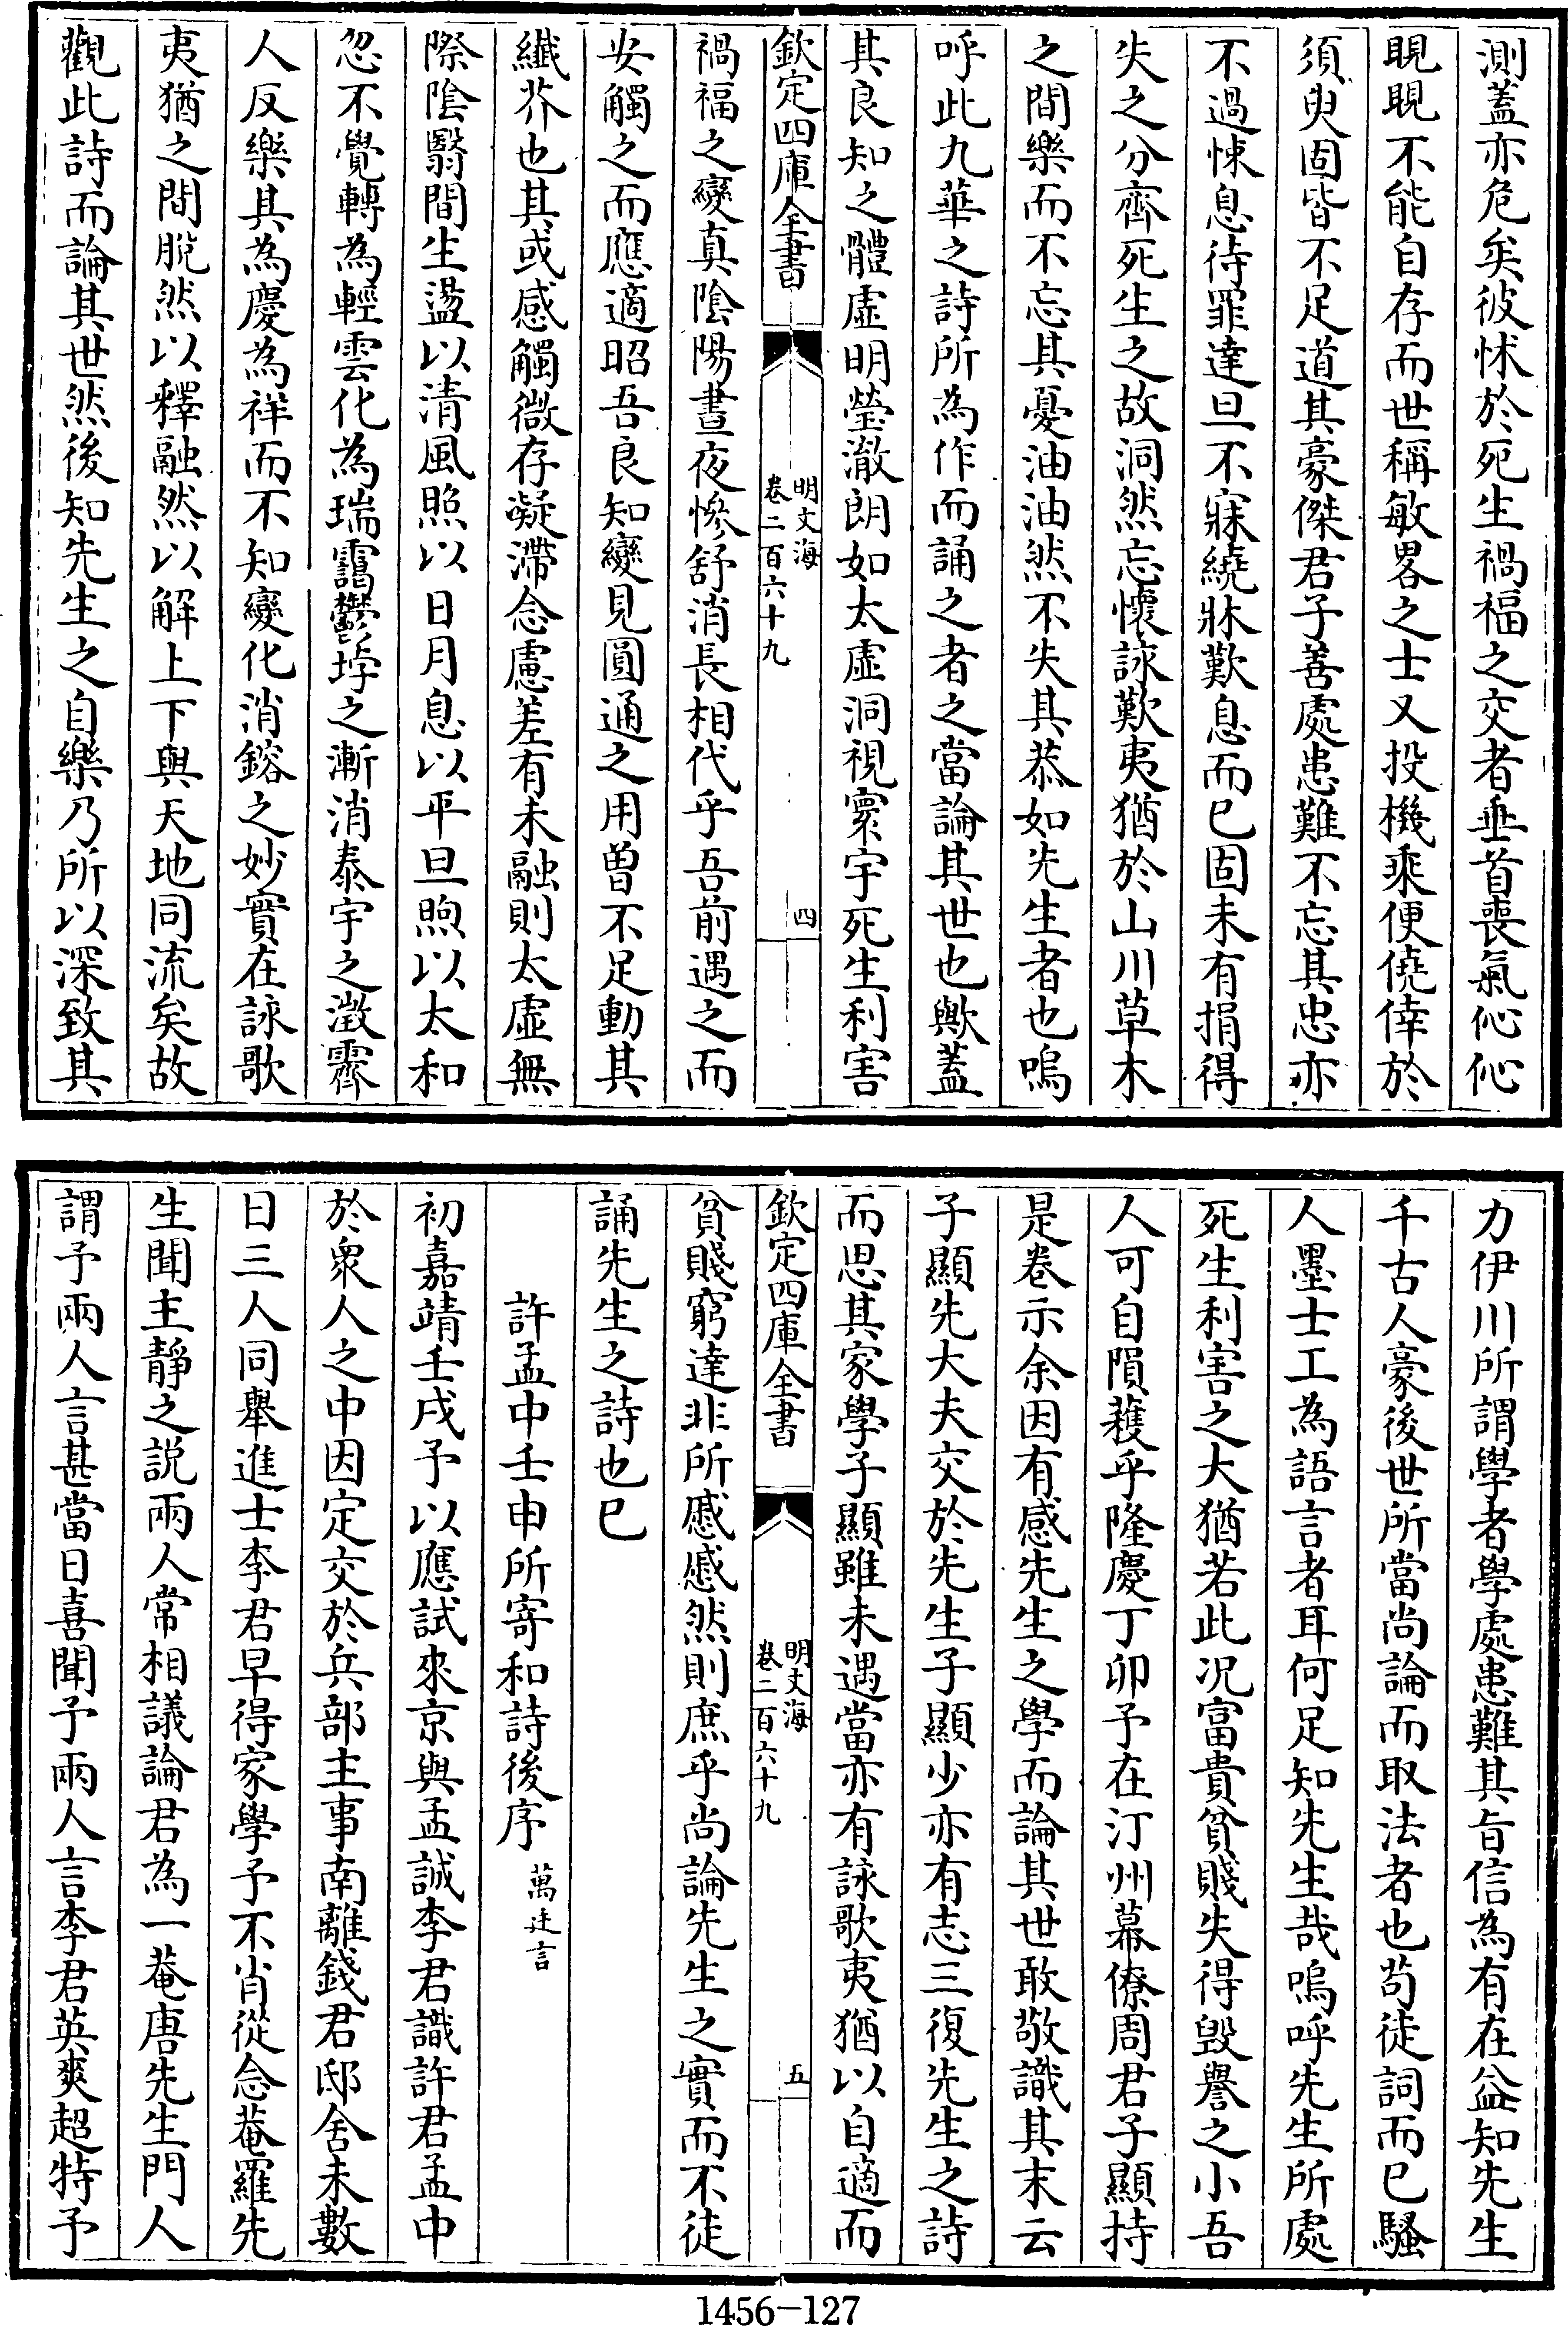 測蓋亦危矣彼怵於死生禍福之交者垂首喪氣伈伈
睍睍不能自存而世稱敏畧之士又投機乘便僥倖於
須臾固皆不足道其豪傑君子善處患難不忘其忠亦
不過悚息待罪達旦不寐繞牀歎息而已固未有捐得
失之分齊死生之故洞然忘懷詠歎夷猶於山川草木
之間樂而不忘其憂油油然不失其恭如先生者也嗚
呼此九華之詩所為作而誦之者之當論其世也歟蓋
其良知之體虛明瑩澈朗如太虛洞視寰宇死生利害
欽定四庫全書
明文海
卷二百六十九
四
禍福之變真陰陽晝夜慘舒消長相代乎吾前遇之而
安觸之而應適昭吾良知變見圓通之用曽不足動其
纎芥也其或感觸微存凝滯念慮差有未融則太虛無
際陰翳間生盪以清風照以日月息以平旦煦以太和
忽不覺轉為輕雲化為瑞靄鬱垺之漸消泰宇之澂霽
人反樂其為慶為祥而不知變化消鎔之妙實在詠歌
夷猶之間脫然以釋融然以解上下與天地同流矣故
觀此詩而論其世然後知先生之自樂乃所以深致其
力伊川所謂學者學處患難其旨信為有在益知先生
千古人豪後世所當尚論而取法者也苟徒詞而已騷
人墨士工為語言者耳何足知先生哉嗚呼先生所處
死生利害之大猶若此况富貴貧賤失得毀譽之小吾
人可自隕穫乎隆慶丁卯予在汀州幕僚周君子顯持
是卷示余因有感先生之學而論其世敢敬識其末云
子顯先大夫交於先生子顯少亦有志三復先生之詩
而思其家學子顯雖未遇當亦有詠歌夷猶以自適而
欽定四庫全書
明文海
卷二百六十九
五
貧賤窮達非所慼慼然則庶乎尚論先生之實而不徒
誦先生之詩也已
許孟中壬申所寄和詩後序 萬廷言
初嘉靖壬戌予以應試來京與孟誠李君識許君孟中
於衆人之中因定交於兵部主事南離錢君邸舍未數
日三人同舉進士李君早得家學予不肖從念菴羅先
生聞主靜之説兩人常相議論君為一菴唐先生門人
謂予兩人言甚當日喜聞予兩人言李君英爽超特予
1456-127